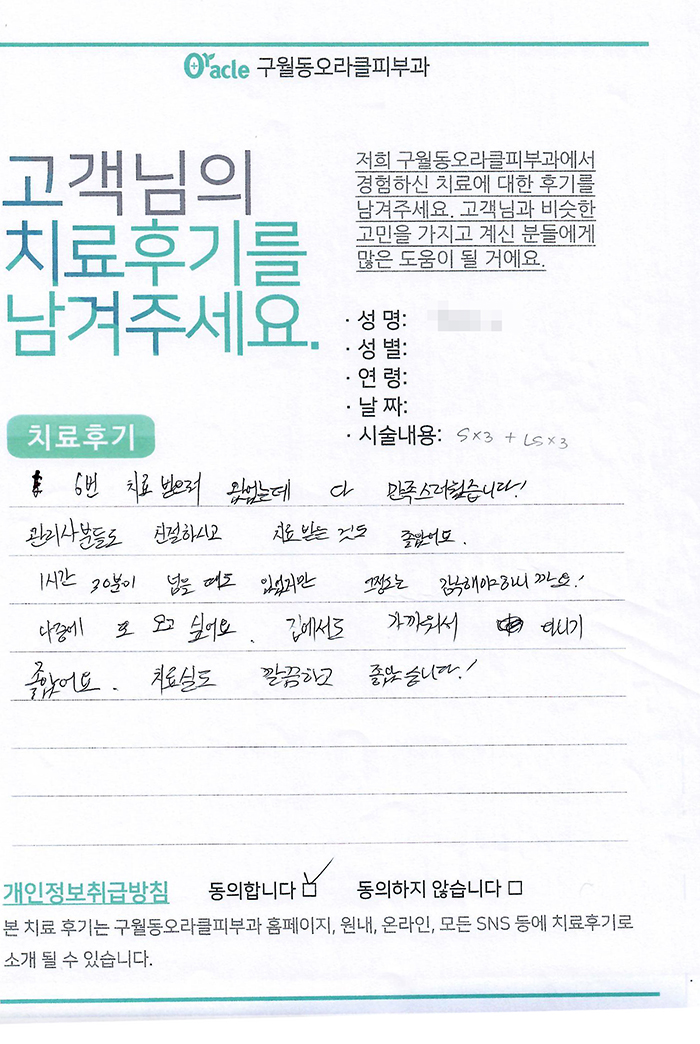 Oracle 구월동오라클피부과
고객님의
치료후기를
남겨주세요.
저희 구월동오라클피부과에서
경험하신 치료에 대한 후기를
남겨주세요. 고객님과 비슷한
고민을 가지고 계신 분들에게
많은 도움이 될 거에요.
· 성 명:
· 성 별:
· 연 령:
· 날 짜:
· 시술내용: S×3 + LS×3
치료후기
6번 치료 받으러 왔었는데 다 만족스러웠습니다!
관리사분들도 친절하시고 치료 받는 것도 좋았어요.
1시간 30분이 넘을 때도 있었지만 그정도는 감수해야하니까요!
나중에 또 오고 싶어요. 집에서도 가까워서 다니기
좋았어요. 치료실도 깔끔하고 좋았습니다!
개인정보취급방침 동의합니다 동의하지 않습니다
본 치료 후기는 구월동오라클피부과 홈페이지, 원내, 온라인, 모든 SNS 등에 치료후기로
소개 될 수 있습니다.